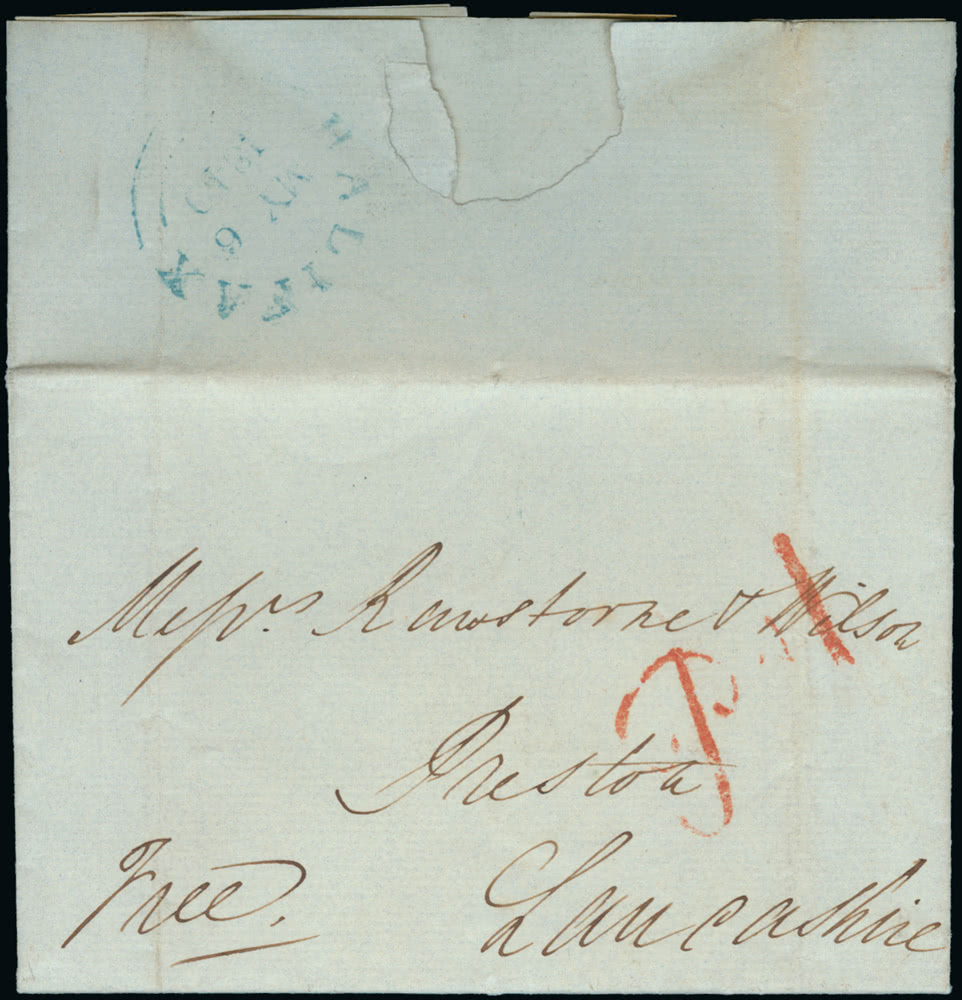 HALIFAX
MY 6
1840
Messrs. Rawstorne & Wilson
P 1
Preston
Free.
Lancashire